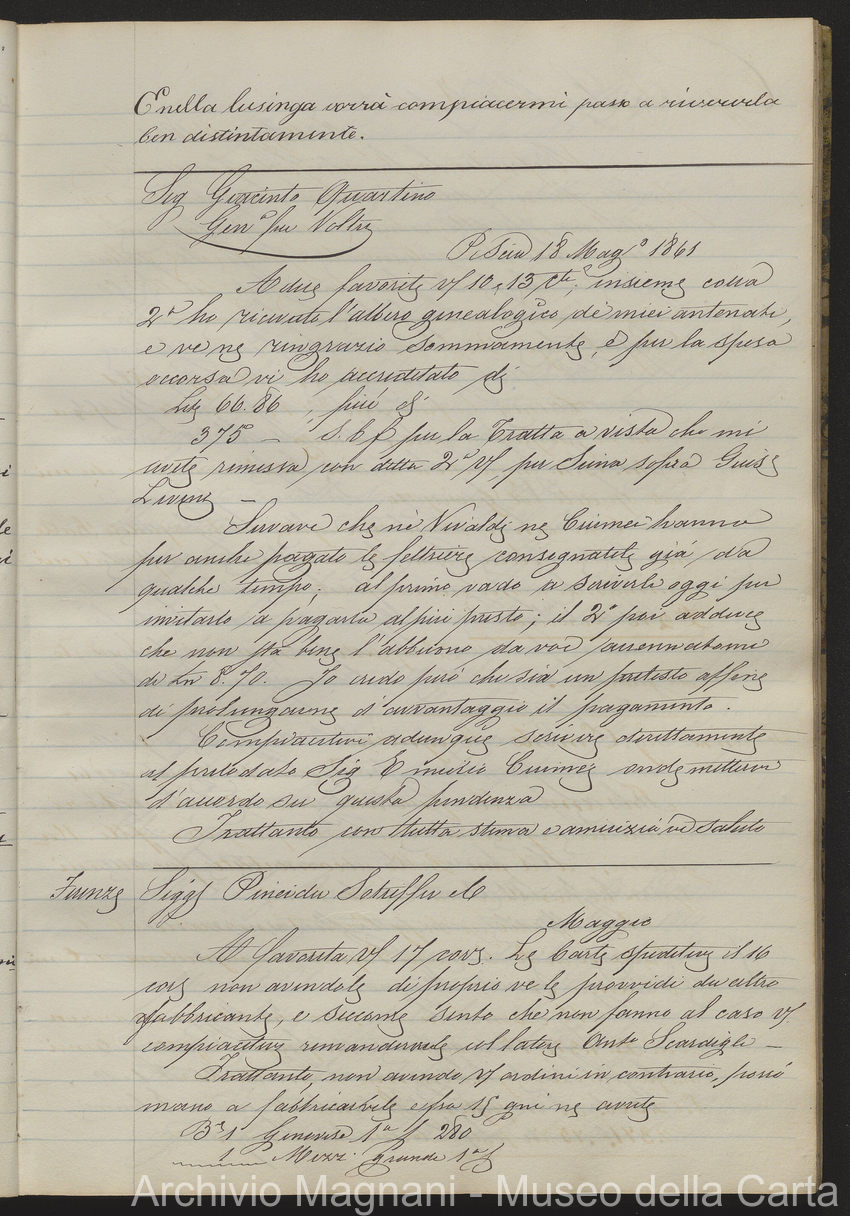 E nella lusinga vorrà compiacermi passo a riverirla
ben distintamente.
Sig Giacinto Quartino
Gen.ª per Voltri
Pescia 18 Mag.º 1861
A due favorite Vf 10, e 13, cte, insieme colla
2ª ho ricevuto l'albero genealogico de miei antenati,
e ve ne ringrazio sommamente, e per la spesa
occorsa vi ho accreditato di
Ln 66.86, più di
375 — S.B.f. per la Tratta a vista che mi
avete rimessa con detta 2ª Vf per Siena sopra Guis.e
Livini —
Sarvavi che nè Vivaldi ne Cuimei hanno
per anche pagato le feltriere consegnateli già da
qualche tempo; al primo vado a scriverli oggi per
invitarlo a pagarla al più presto; il 2º poi adduce
che non sta bene l'abbuono da voi accennatomi
di Ln 8.70. Io credo però che sia un pretesto affine
di prolungarne d'avvantaggio il pagamento.
Compiacetevi adunque scrivere direttamente
al prelodato Sig Emilio Cuimei onde mettervi
d'accordo su questa pendenza
Trattanto con tutta stima e amicizia vi saluto
Firenze Sigg Pineider Smorffer e C
Maggio
A favorita Vf 17 corr. Le Carte speditevi il 16
corr non avendole di proprio ve le provvidi da altro
fabbricante, e siccome sento che non fanno al caso Vf.
compiacetevi rimandarvele col latore Ant.º Scardigli —
Trattanto, non avendo Vf ordini in contrario, pongo
mano a fabbricarvele e fra 15 gni ne avrete
B.e 1 Genovese 1ª f 280
1 Mezz. Grande 1ª f
Archivio Magnani - Museo della Carta